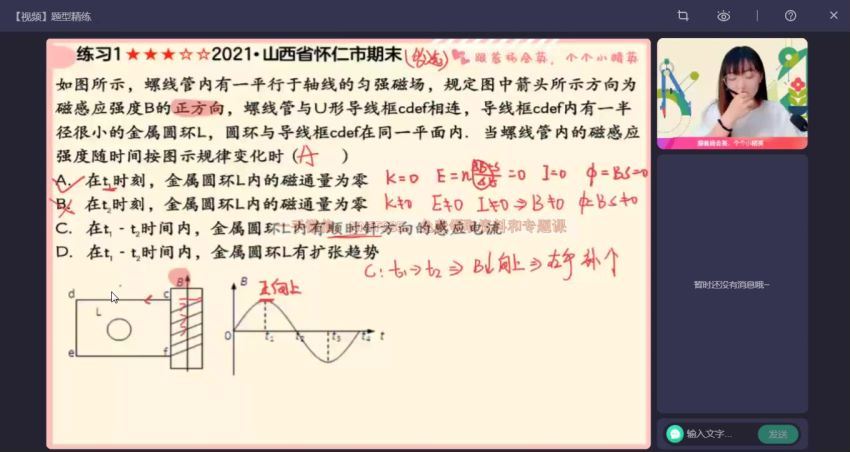 【视频】题型精练
练习1 ★★★☆☆ 2021·山西省怀仁市期末
跟着杨会英,个个小精英
如图所示，螺线管内有一平行于轴线的匀强磁场，规定图中箭头所示方向为
磁感应强度B的正方向，螺线管与U形导线框cdef相连，导线框cdef内有一半
径很小的金属圆环L，圆环与导线框cdef在同一平面内．当螺线管内的磁感应
强度随时间按图示规律变化时（A ）
A．在t₁时刻，金属圆环L内的磁通量为零 K=0 E=n =0 I=0 φ=BS=0
B．在t₂时刻，金属圆环L内的磁通量为零 K≠0 E≠0 I≠0⇒B≠0 φ=BS≠0
C．在t₁-t₂时间内，金属圆环L内有顺时针方向的感应电流
D．在t₁-t₂时间内，金属圆环L有扩张趋势
C: t₁→t₂ ⇒ B↓向上⇒右手
d c B B 正向上
L
e f O t₁ t₂ t₃ t₄ t
跟着杨会英，个个小精英
暂时还没有消息哦~
输入文字... 发送